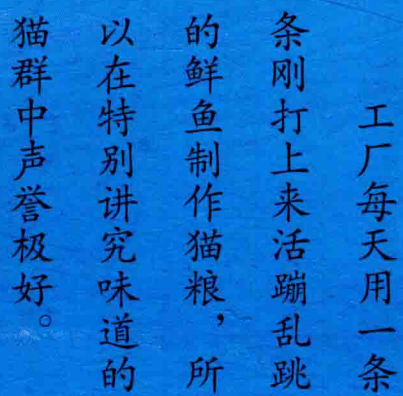 工厂每天用一条
条刚打上来活蹦乱跳
的鲜鱼制作猫粮，所
以在特别讲究味道的
猫群中声誉极好。